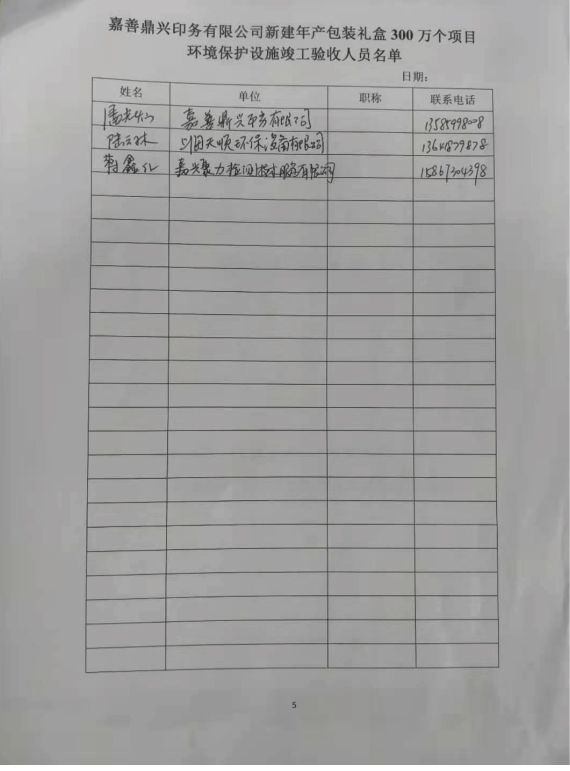 嘉善鼎兴印务有限公司新建年产包装礼盒 300 万个项目
环境保护设施竣工验收人员名单
日期：
姓名 单位 职称 联系电话
嘉善鼎兴印务有限公司
天顺环保设备有限公司
嘉兴聚力检测技术服务有限公司 15867304398
5